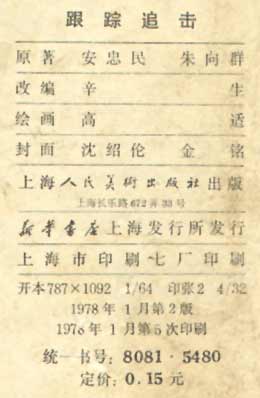 跟踪追击
原著 安忠民 朱向群
改编 辛生
绘画 高适
封面 沈绍伦 金铭
上海人民美術出版社出版
上海长乐路672弄33号
新华书店上海发行所发行
上海市印刷七厂印刷
开本787×1092 1/64 印张2 4/32
1978年1月第2版
1978年1月第5次印刷
统一书号:8081·5480
定价:0.15元